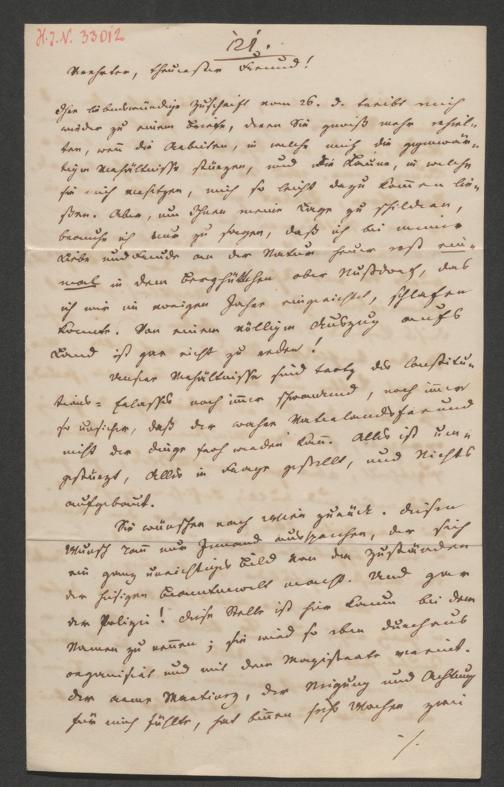 H.I.N. 33012
121.
Verehrter, theuerster Freund!
Ihre liebenswürdige Zuschrift vom 26. d. treibt mich
wieder zu einem Briefe, deren Sie gewiß mehr erhiel-
ten, wenn die Arbeiten, in welche mich die gegenwär-
tigen Verhältnisse stürzen, und die Laune, in welche
sie mich versetzen, mich so leicht dazu kommen lie-
ßen. Aber, um Ihnen meine Lage zu schildern,
brauche ich nur zu sagen, daß ich bei meiner
Liebe und Freude an der Natur heuer erst ein-
mal in dem Berghüttchen ober Nußdorf, das
ich mir im vorigen Jahre eingerichtet, schlafen
konnte. Von einem völligen Auszug aufs
Land ist gar nicht zu reden!
Unsere Verhältnisse sind trotz des Constitu-
tions-Erlasses noch immer schwankend, noch immer
so unsicher, daß der wahre Vaterlandsfreund
nicht der Dinge froh werden kann. Alles ist um-
gestürzt, Alles in Frage gestellt, und Nichts
aufgebaut.
Sie wünschen nach Wien zurück. Diesen
Wunsch kann nur Jemand aussprechen, der sich
ein ganz unrichtiges Bild von den Zuständen
der hiesigen Beamtenwelt macht. Und gar
der Polizei! Diese Stelle ist hier kaum bei dem
Namen zu nennen; sie wird so eben durchaus
organisirt und mit dem Magistrate vereint.
Der arme Martinez, der Neigung und Achtung
für mich fühlte, hat binnen sechs Wochen zwei
./.